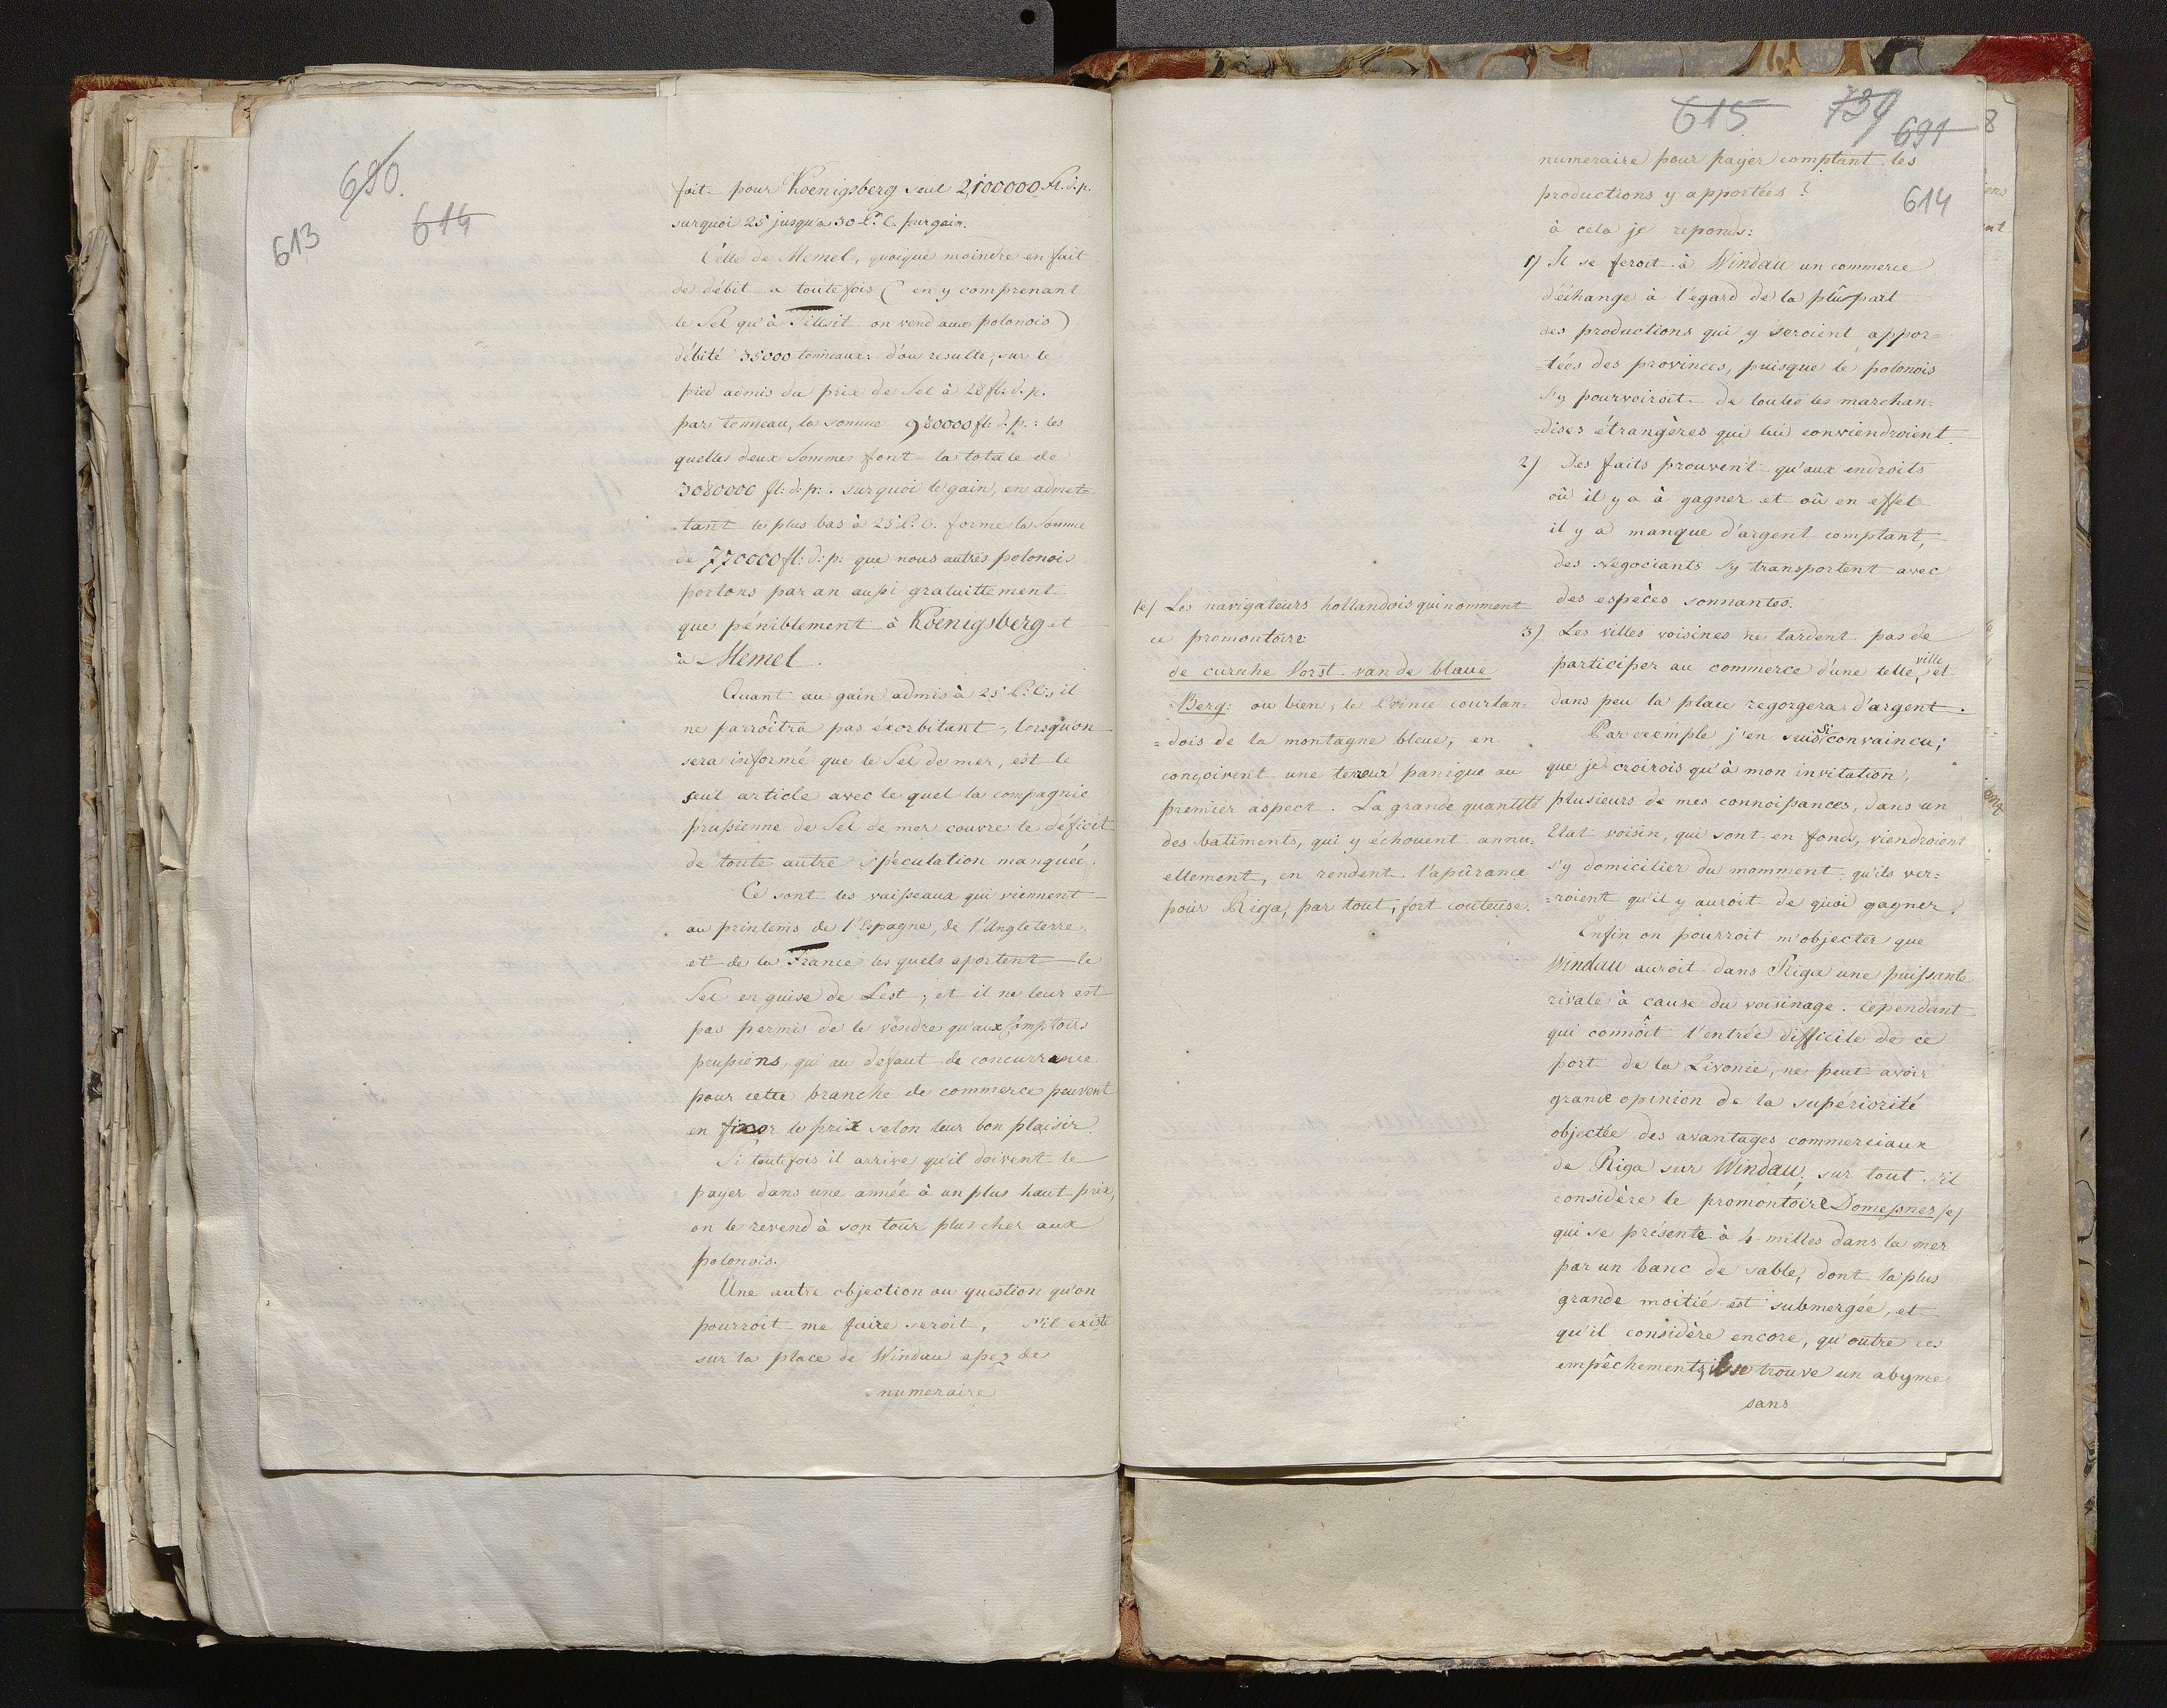 690.
614
613
fait pour Koenigsberg seul 2,100000 fl. d. p.
surquoi 25 jusqu'a 30 P. C. pur gain.
Celle de Memel, quoique moindre en fait
de débit a toute fois (en y comprenant
le Sel qu'à Tillsit on vend aux polonois)
débité 35000 tonneaux d'ou resulte, sur le
pied admis du prix de Sel à 28 fl: d. p.
par tonneau, la somme 980000 fl: d. p.: les
quelles deux Sommes font la totale de
3080000 fl: d: p:. surquoi le gain, en admet-
tant le plus bas à 25 P. C. forme la Somme
de 770000 fl: d: p: que nous autres polonois
portons par an aussi gratuittement
que péniblement à Koenigsberg et
à Memel.
Quant au gain admis à 25 P. C., il
ne parroîtra pas éxorbitant, lorsqu'on
sera informé que le Sel de mer, est le
seul article avec le quel la compagnie
prussienne de Sel de mer couvre le déficit
de toute autre spéculation manquée.
Ce sont les vaisseaux qui viennent
au printems de l'Espagne, de l'Angleterre,
et de la France les quels aportent le
Sel en guise de Lest; et il ne leur est
pas permis de le vendre qu'aux Comptoirs
prussiens, qui au defaut de concurrance
pour cette branche de commerce peuvent
en fixer le prix selon leur bon plaisir.
Si toute fois il arrive qu'il doivent le
payer dans une année à un plus haut prix,
on le revend à son tour plus cher aux
polonois.
Une autre objection ou question qu'on
pourroit me faire seroit, s'il existe
sur la place de Windau assez de
numeraire
615 739 691 8
614
numeraire pour payer comptant les
productions y apportées?
à cela je reponds:
1) Il se feroit à Windau un commerce
d'échange à l'egard de la plûspart
des productions qui y seroient appor-
-tées des provinces, puisque le polonois
s'y pourvoiroit de toutes les marchan-
-dises étrangères qui lui conviendroient.
2) Des faits prouvent qu'aux endroits
où il y a à gagner et où en effet
il y a manque d'argent comptant,
des Negociants s'y transportent avec
des espèces sonnantes.
3) Les villes voisines ne tardent pas de
participer au commerce d'une telle ville, et
dans peu la place regorgera d'argent.
Par exemple j'en suis si convaincu;
que je croirois qu'à mon invitation,
plusieurs de mes connoissances, dans un
Etat voisin, qui sont en fonds, viendroient
s'y domicilier du momment qu'ils ver-
-roient qu'il y auroit de quoi gagner.
Enfin on pourroit m'objecter que
Windau auroit dans Riga une puissante
rivale à cause du voisinage. Cependant
qui connôit l'entrée difficile de ce
port de la Livonie, ne peut avoir
grande opinion de la supériorité
objectée des avantages commerciaux
de Riga sur Windau, sur tout s'il
considère le promontoire Domesnes (e)
qui se présente à 4 milles dans la mer
par un banc de sable, dont la plus
grande moitié est submergée, et
qu'il considère encore, qu'outre ces
empêchements, il se trouve un abyme
sans
(e) Les navigateurs hollandois qui nomment
ce promontoire:
de curuhe Vorst van de blaue
Berg: ou bien, le Prince courlan-
-dois de la montagne bleue, en
conçoivent une tereur panique au
premier aspect. La grande quantité
des batiments, qui y échouent annu-
ellement, en rendent l'assûrance
pour Riga, par tout, fort couteuse.